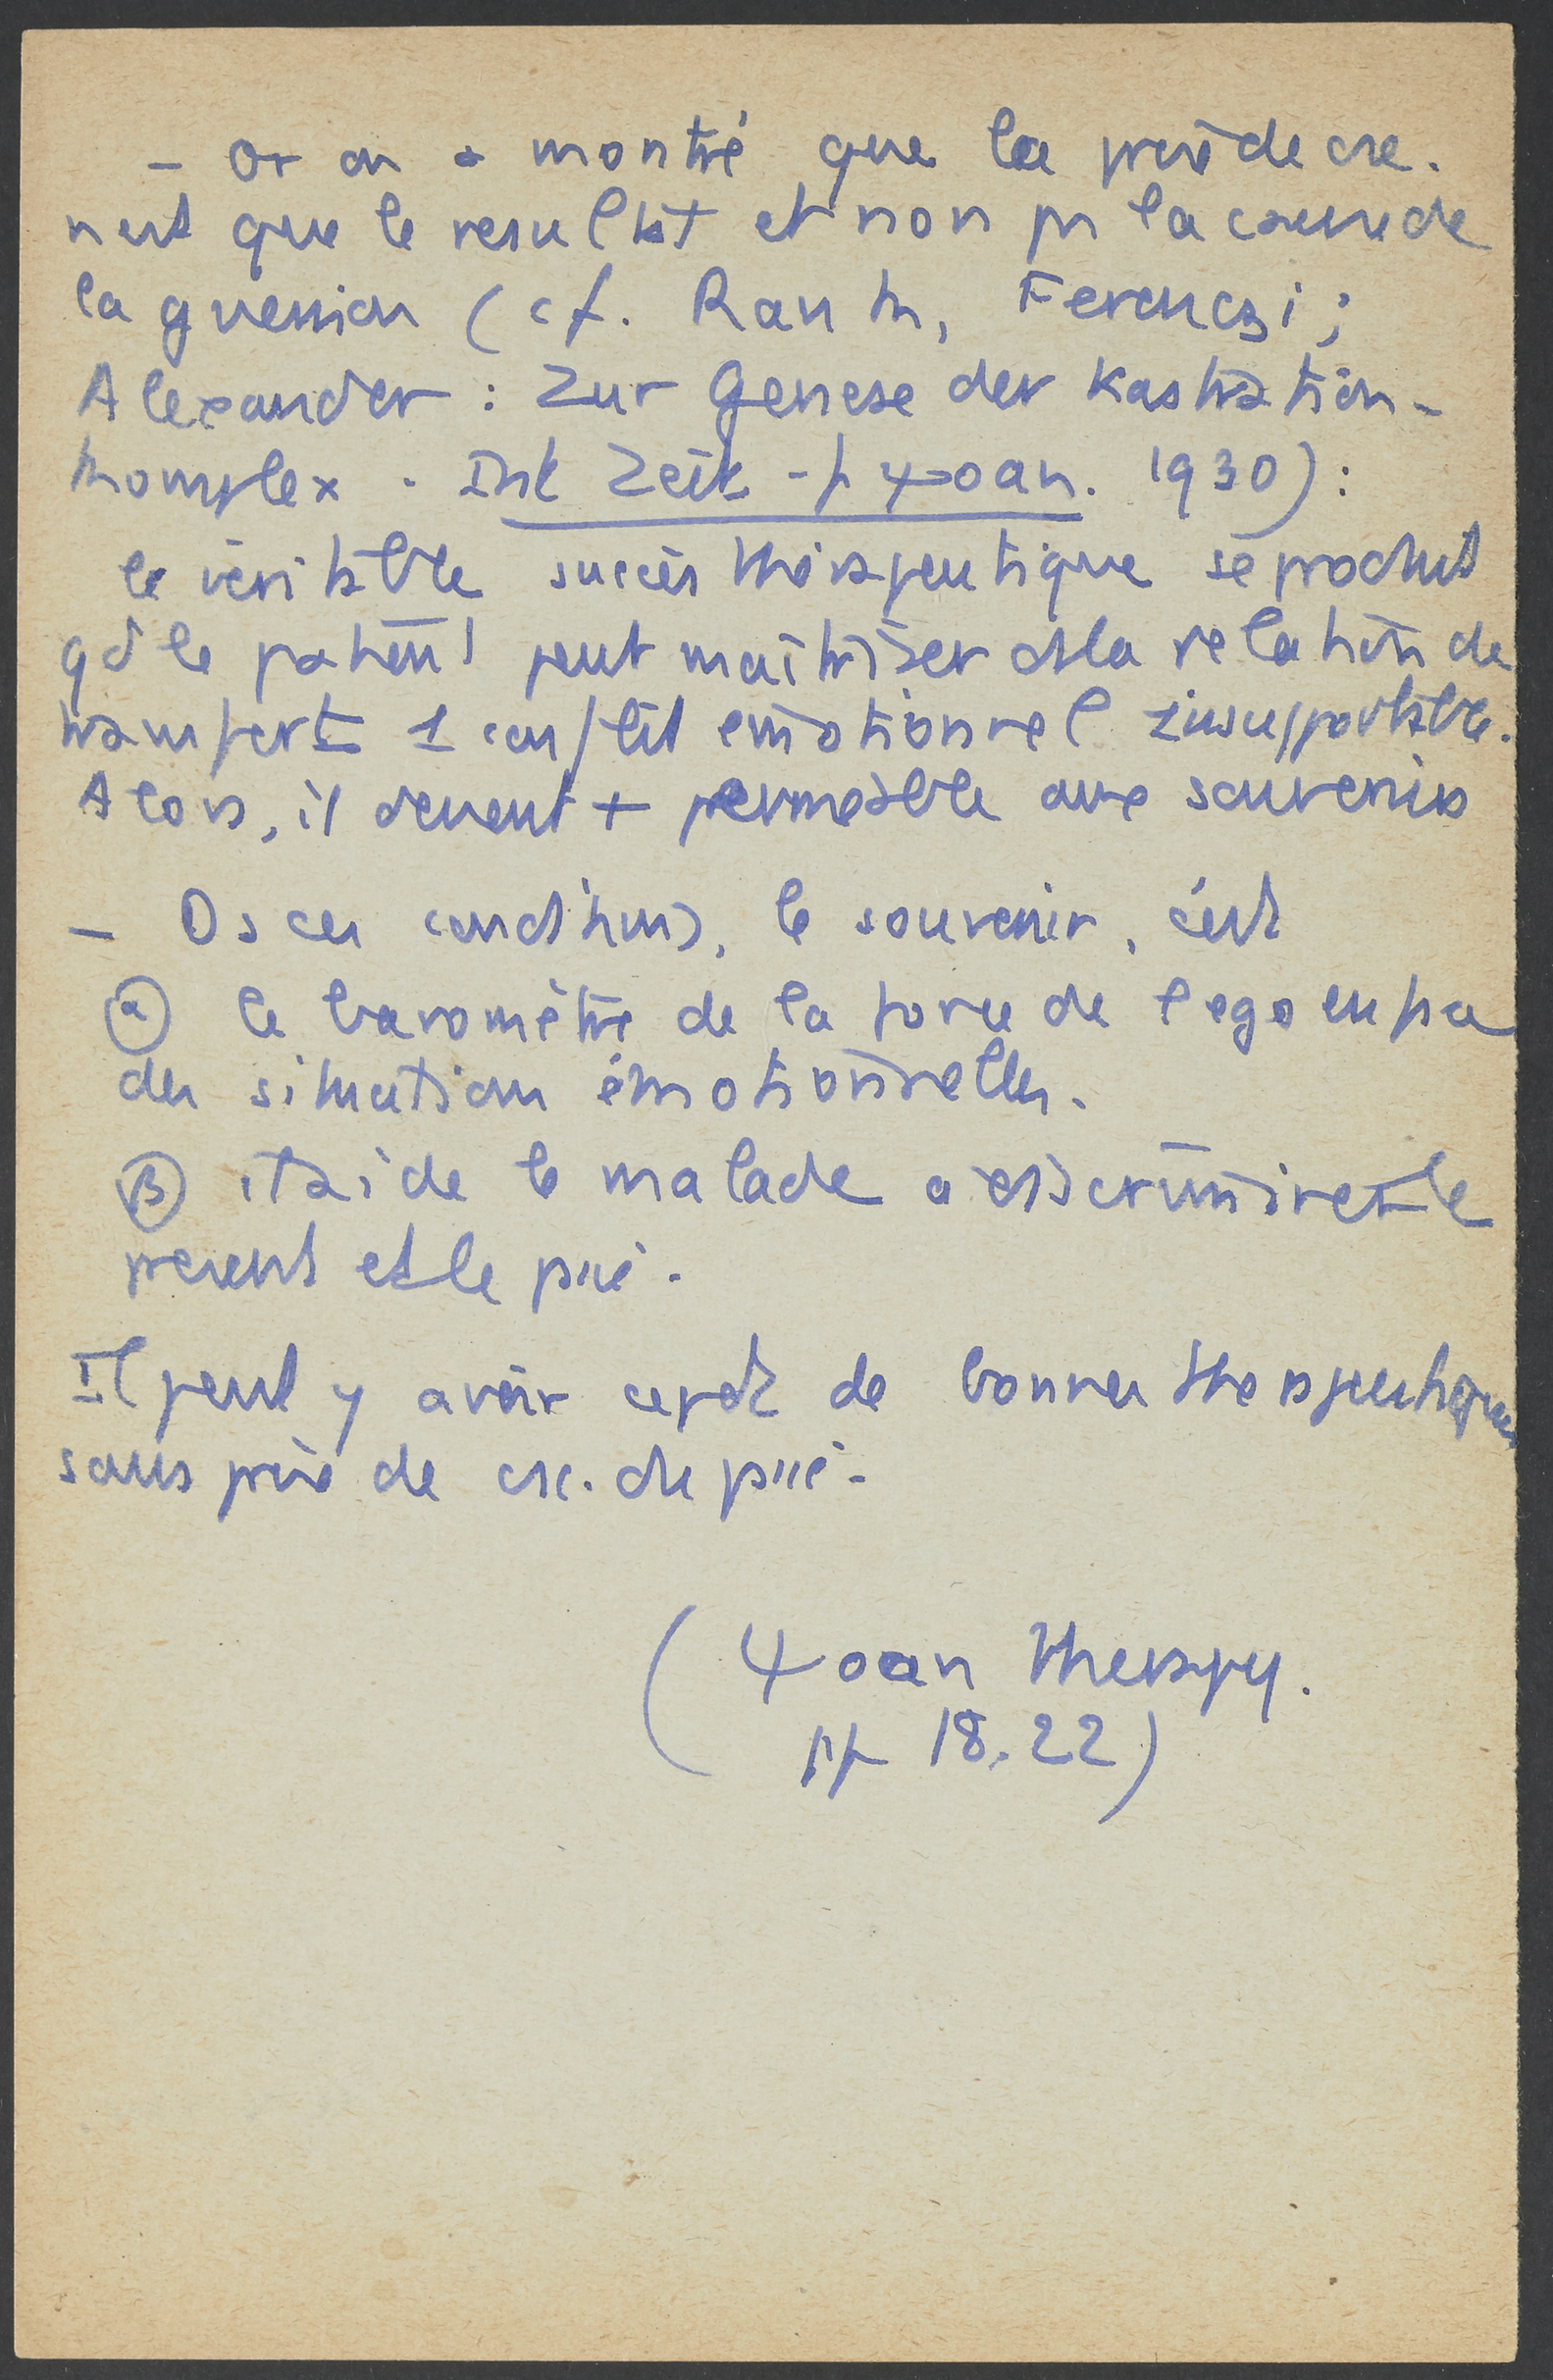 - Or on a montré que la prise de csc.
n'est que le resultat et non pas la cause de
la guerison (cf. Rank, Ferenczi ;
Alexander : Zur Genese der Kastration-
komplex . Int Zeit - f ψoan. 1930) :
le véritable succès thérapeutique se produit
qd le patient peut maitriser ds la relation de
transfert 1 conflit émotionnel insupportable.
Alors, il devient + permeable aux souvenirs
- Ds ces conditions, le souvenir, c'est
α le baromètre de la force de l'ego en face
des situations émotionnelles.
β il aide le malade a discriminer le
present et le passé.
Il peut y avoir cepdt de bonnes thérapeutiques
sans prise de csc. du passé.
(ψoan Therapy.
pp 18.22)